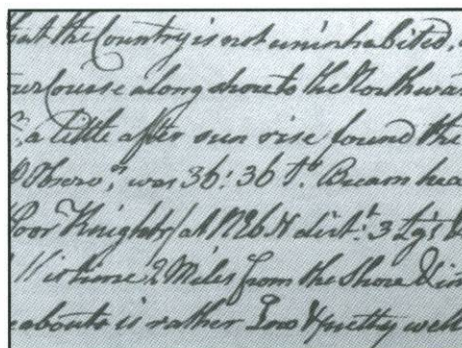 that the Country is not uninhabited,
our Course along shore to the Northward
a little after sun rise found the
Observ.n was 36: 36 Bream head
Poor Knights at NEbN dist.t 3 Lgs
this time 2 Miles from the Shore & in
abouts is rather Low & pretty well